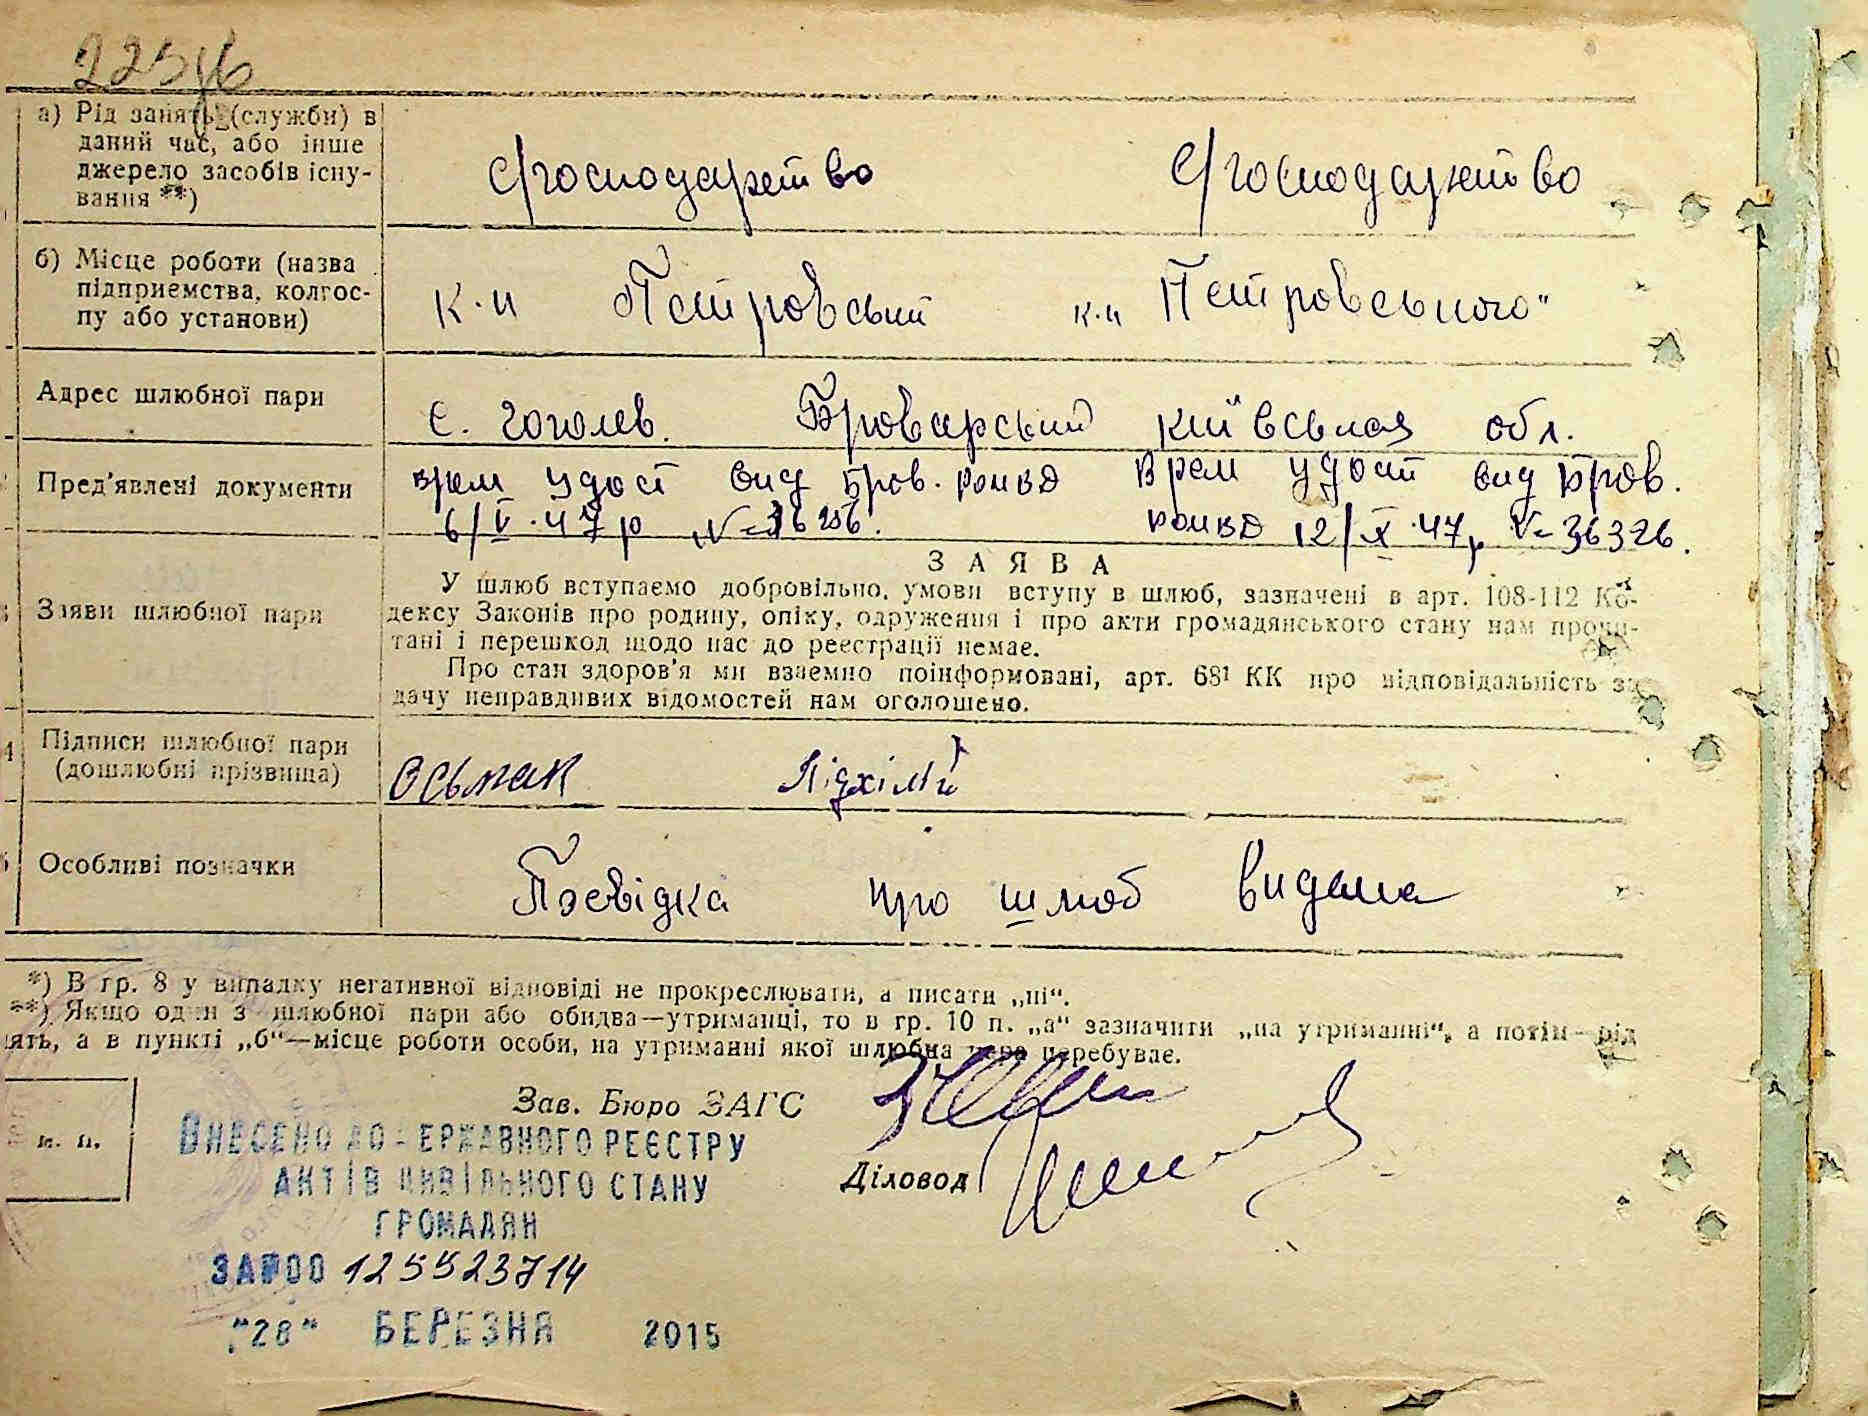 а) Рід занять (служби) в
даний час, або інше
джерело засобів існу-
вання **)
с/господарство с/господарство
б) Місце роботи (назва
підприємства, колгос-
пу або установи)
к-п Петровський к-п Петровського"
Адрес шлюбної пари
с. Гоголев. Броварський Київською обл.
Пред'явлені документи
врем удост вид Бров. ронвд Врем удост вид Бров.
6/V.47р ронвд 12/X.47р №36326.
ЗАЯВА
Заяви шлюбної пари
У шлюб вступаємо добровільно, умови вступу в шлюб, зазначені в арт. 108-112 Ко-
дексу Законів про родину, опіку, одруження і про акти громадянського стану нам прочи-
тані і перешкод щодо нас до реєстрації немає.
Про стан здоров'я ми взаємно поінформовані, арт. 68¹ КК про відповідальність за
дачу неправдивих відомостей нам оголошено.
Підписи шлюбної пари
(дошлюбні прізвища)
Осьмак
Особливі позначки
Посвідка про шлюб видана
*) В гр. 8 у випадку негативної відповіді не прокреслювати, а писати „ні“.
**) Якщо один з шлюбної пари або обидва—утриманці, то в гр. 10 п. „а“ зазначити „на утриманні“, а потім—рід
ять, а в пункті „б“—місце роботи особи, на утриманні якої шлюбна пара перебуває.
м. п.
Зав. Бюро ЗАГС
Діловод
ВНЕСЕНО ДО ДЕРЖАВНОГО РЕЄСТРУ
АКТІВ ЦИВІЛЬНОГО СТАНУ
ГРОМАДЯН
ЗА №00 125523714
"28" БЕРЕЗНЯ 2015